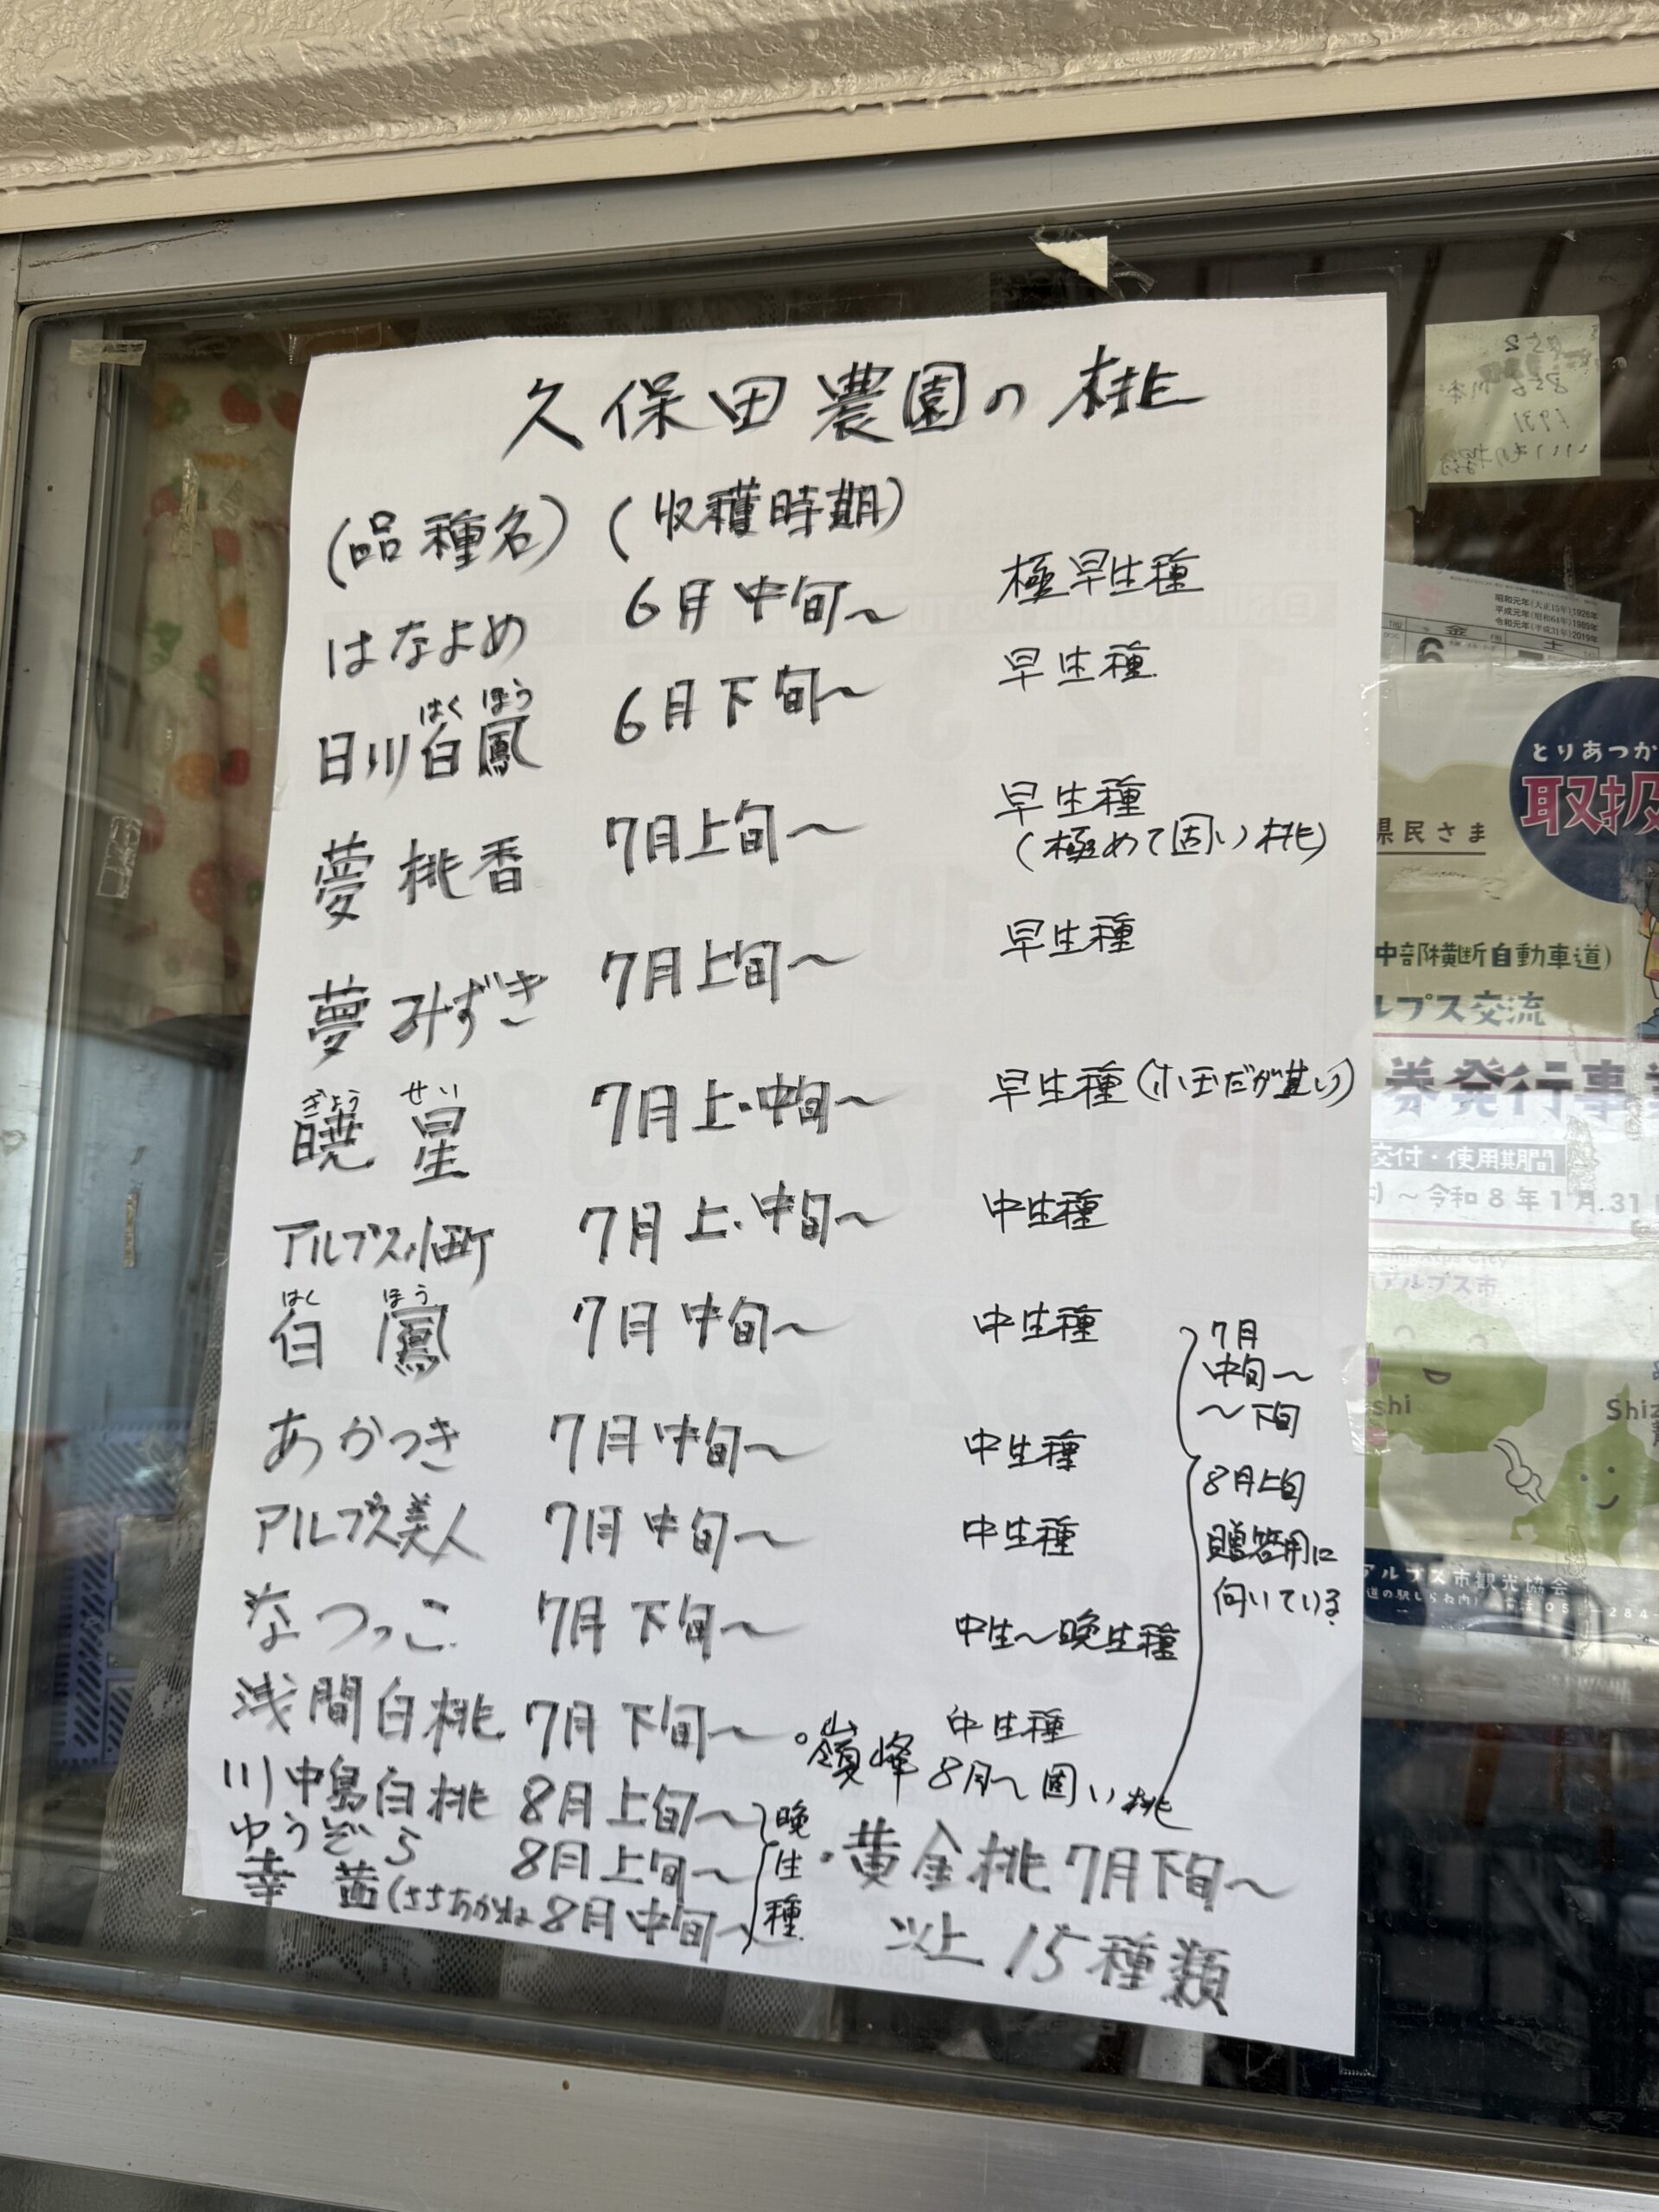 久保田農園の桃
(品種名) (収穫時期)
はなよめ 6月中旬～ 極早生種
はくほう
日川白鳳 6月下旬～ 早生種
夢桃香 7月上旬～ 早生種
(極めて固い桃)
夢みずき 7月上旬～ 早生種
ぎょう せい
暁星 7月上・中旬～ 早生種(小玉だが甘い)
アルプス小町 7月上・中旬～ 中生種
はく ほう
白鳳 7月中旬～ 中生種
あかつき 7月中旬～ 中生種
アルプス美人 7月中旬～ 中生種
なつっこ 7月下旬～ 中生～晩生種
浅間白桃 7月下旬～ 中生種
川中島白桃 8月上旬～
ゆうぞら 8月上旬～
幸茜(さちあかね 8月中旬～
晩生種
7月
中旬～
～下旬
8月上旬
贈答用に
向いている
。嶺峰 8月～固い桃
・黄金桃 7月下旬～
以上 15種類
852
856
1931
昭和元年(大正15年)1926年
平成元年(昭和64年)1989年
令和元年(平成31年)2019年
金
土
6
とりあつか
取扱
県民さま
中部横断自動車道)
ルプス交流
券発行事業
交付・使用期間
～令和8年1月31
アルプス市
shi
Shiz
アルプス市観光協会
道の駅しらね内
284-